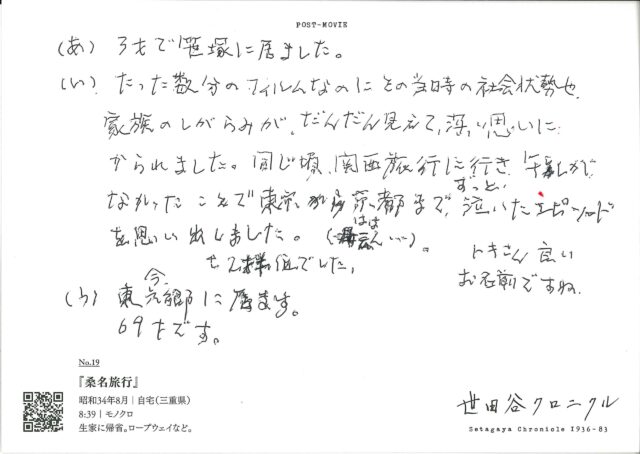 POST-MOVIE
(あ) 3才で笹塚に居ました。
(い) たった数分のフィルムなのにその当時の社会状勢や
家族のしがらみが、だんだん見えて、深い思いに
かられました。同じ頃、関西旅行に行き、
なかったことで東京から京都まで、ずっと泣いたエピソード
を思い出しました。(はは
でした。
トキさん 良い
お名前ですね
(う) 今、東六郷に居ます。
69才です。
No.19
『桑名旅行』
昭和34年8月 | 自宅(三重県)
8:39 | モノクロ
生家に帰省。ロープウェイなど。
世田谷クロニクル
Setagaya Chronicle 1936-83